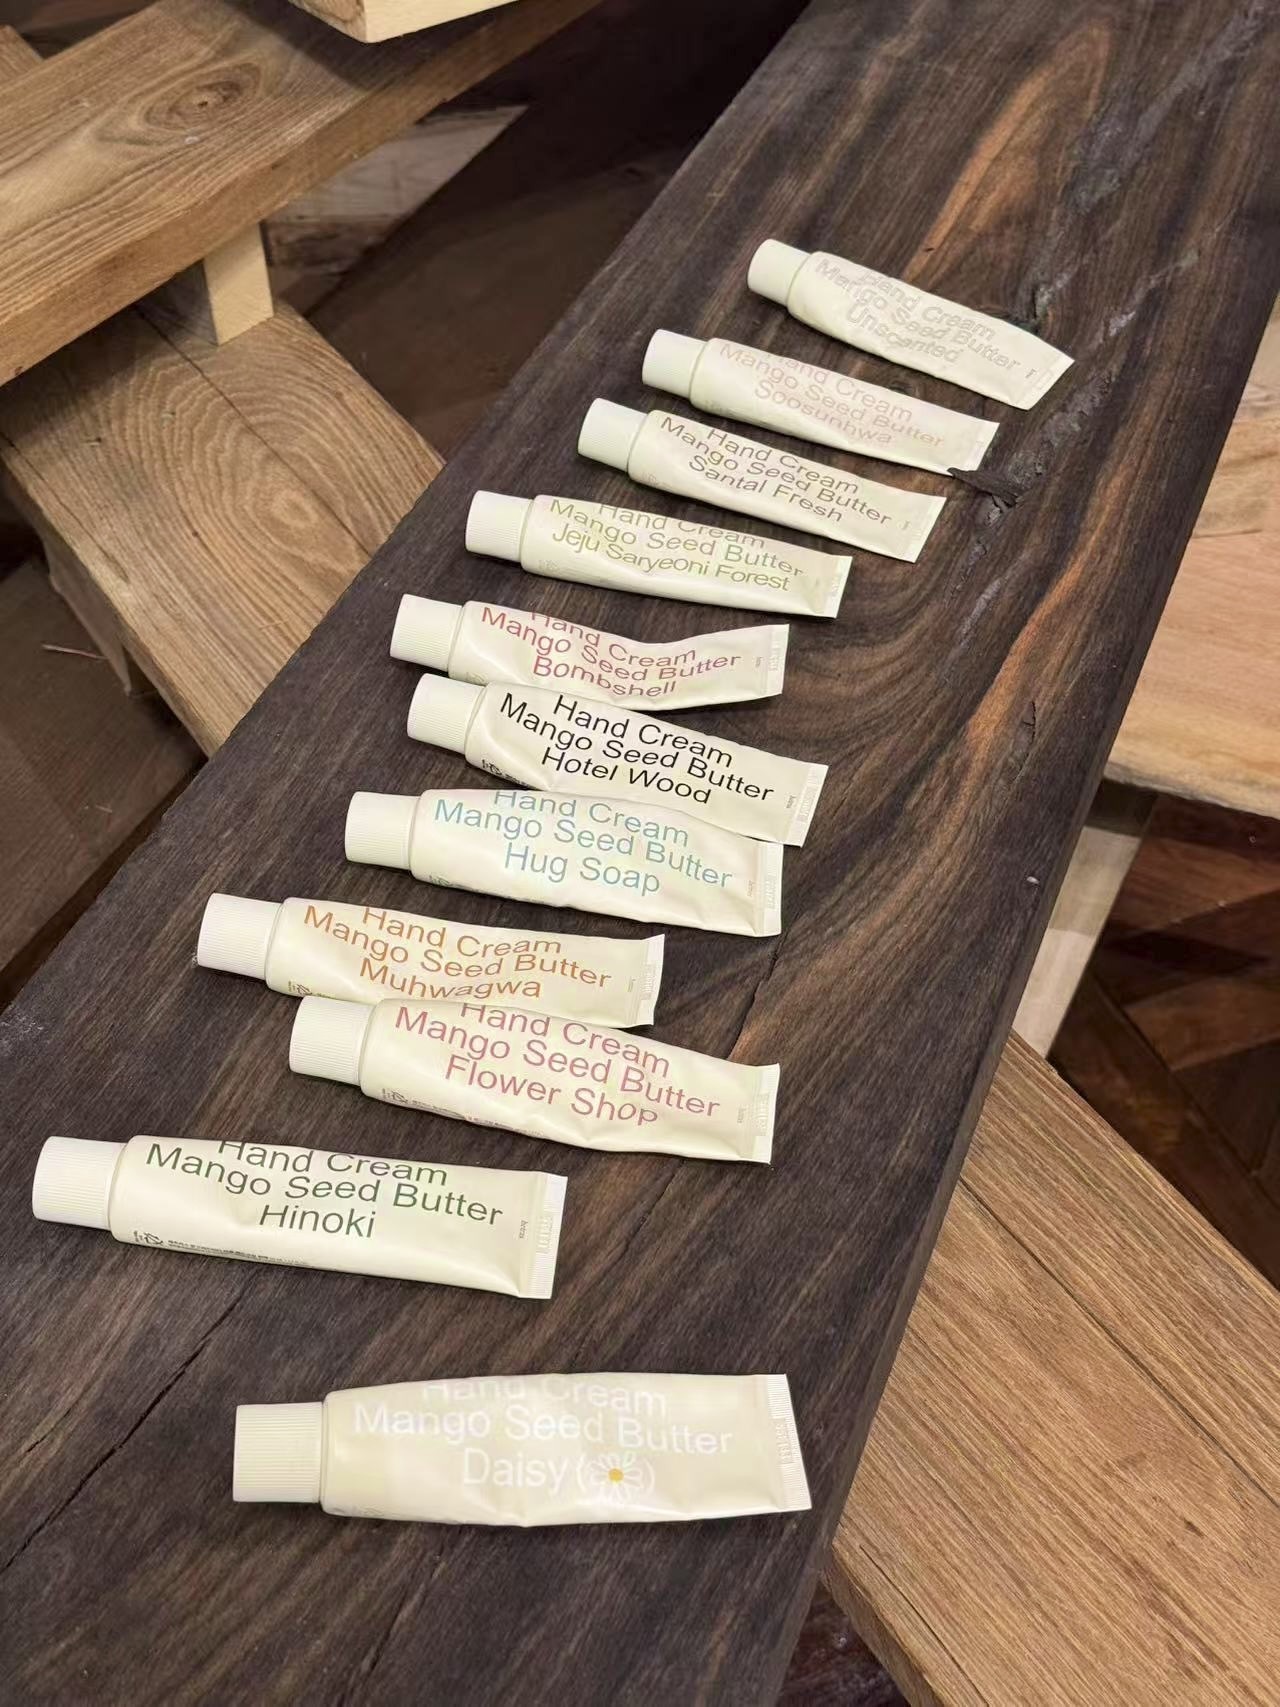 Hand Cream
Mango Seed Butter
Unscented
Hand Cream
Mango Seed Butter
Soosunhwa
Hand Cream
Mango Seed Butter
Santal Fresh
Hand Cream
Mango Seed Butter
Jeju Saryeoni Forest
Hand Cream
Mango Seed Butter
Bombshell
Hand Cream
Mango Seed Butter
Hotel Wood
Hand Cream
Mango Seed Butter
Hug Soap
Hand Cream
Mango Seed Butter
Muhwagwa
Hand Cream
Mango Seed Butter
Flower Shop
Hand Cream
Mango Seed Butter
Hinoki
Hand Cream
Mango Seed Butter
Daisy ( )